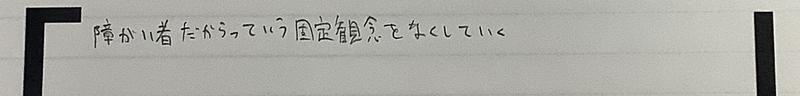 障がい者だからっていう固定観念をなくしていく